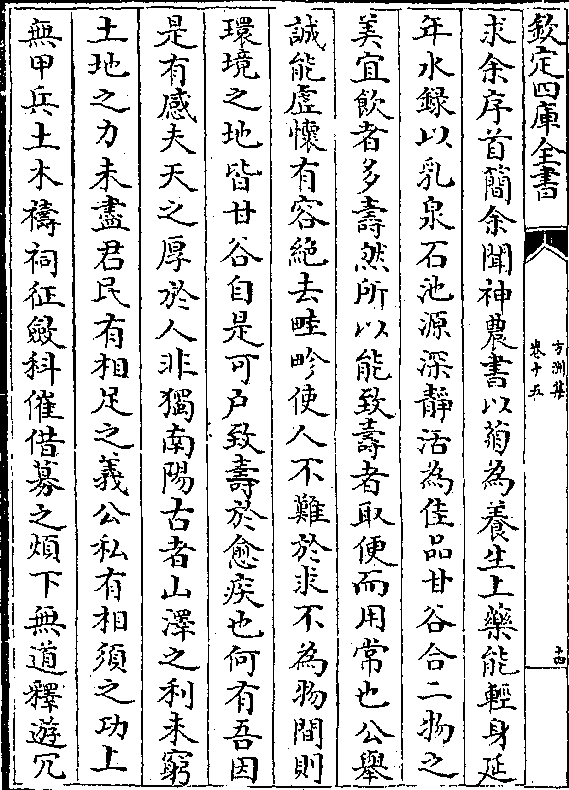 欽定四庫全書
方洲集
卷十五
十四
求余序首簡余聞神農書以菊為養生上藥能輕身延
年水録以乳泉石池源深靜活為佳品甘谷合二物之
美宜飲者多壽然所以能致壽者取便而用常也公舉
誠能虚懷有容絶去畦畛使人不難於求不為物間則
環境之地皆甘谷自是可户致壽於愈疾也何有吾因
是有感夫天之厚於人非獨南陽古者山澤之利未窮
土地之力未盡君民有相足之義公私有相須之功上
無甲兵土木禱祠征斂科催借募之煩下無道釋遊冗